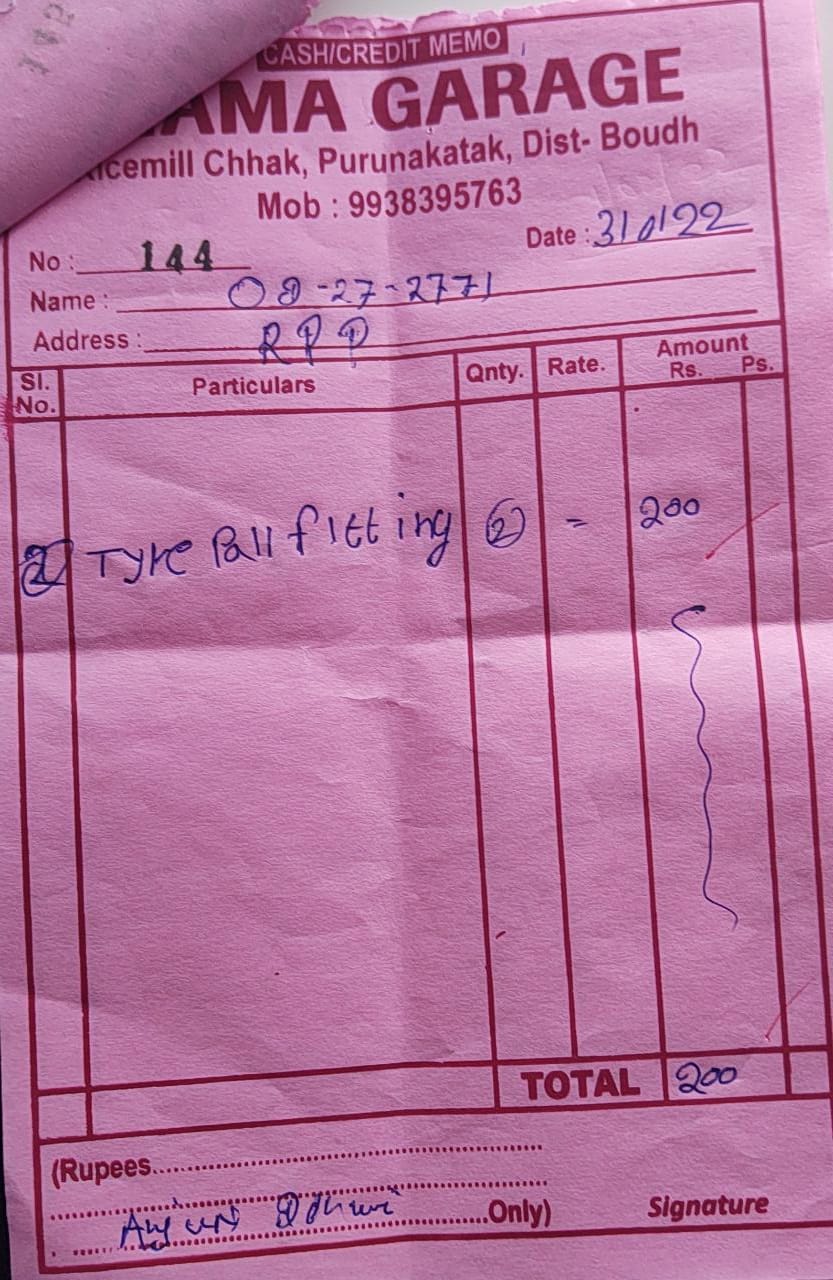 CASH/CREDIT MEMO
AMA GARAGE
icemill Chhak, Purunakatak, Dist- Boudh
Mob : 9938395763
No : 144
Date :
Name : 08-27-2771
Address : RPP
Sl. No. Particulars Qnty. Rate. Amount Rs. Ps.
Tyre Pall fitting 2 = 200
TOTAL 200
(Rupees
Only) Signature